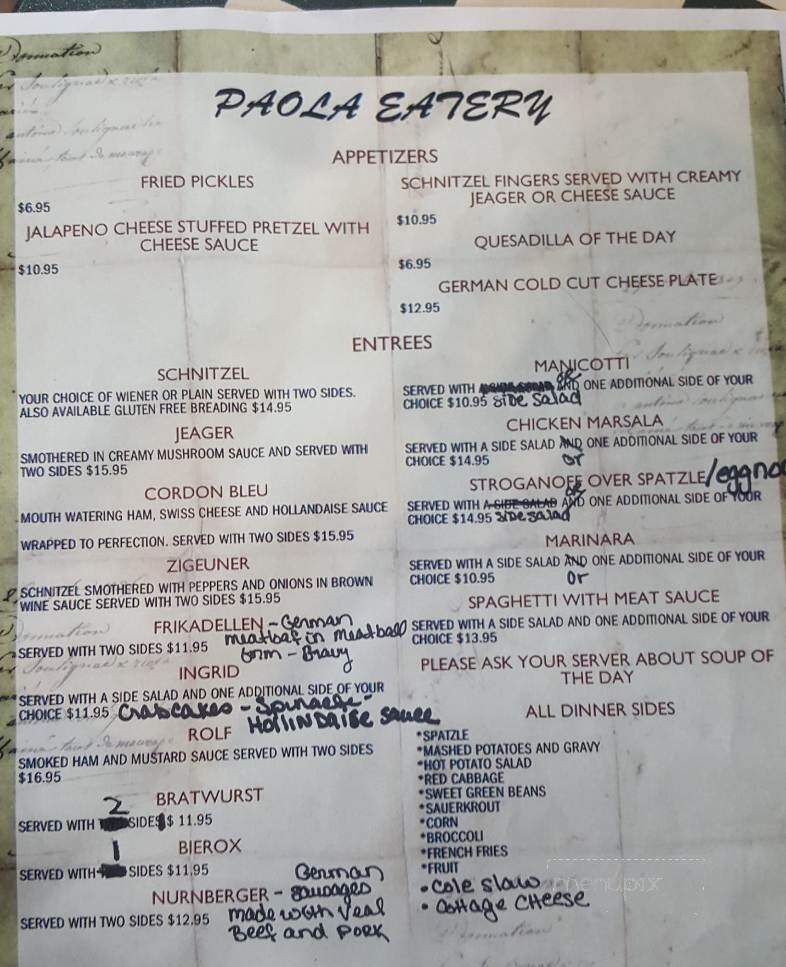 PAOLA EATERY
APPETIZERS
FRIED PICKLES
$6.95
JALAPENO CHEESE STUFFED PRETZEL WITH
CHEESE SAUCE
$10.95
SCHNITZEL FINGERS SERVED WITH CREAMY
JEAGER OR CHEESE SAUCE
$10.95
QUESADILLA OF THE DAY
$6.95
GERMAN COLD CUT CHEESE PLATE
$12.95
ENTREES
SCHNITZEL
YOUR CHOICE OF WIENER OR PLAIN SERVED WITH TWO SIDES.
ALSO AVAILABLE GLUTEN FREE BREADING $14.95
JEAGER
SMOTHERED IN CREAMY MUSHROOM SAUCE AND SERVED WITH
TWO SIDES $15.95
CORDON BLEU
MOUTH WATERING HAM, SWISS CHEESE AND HOLLANDAISE SAUCE
WRAPPED TO PERFECTION. SERVED WITH TWO SIDES $15.95
ZIGEUNER
SCHNITZEL SMOTHERED WITH PEPPERS AND ONIONS IN BROWN
WINE SAUCE SERVED WITH TWO SIDES $15.95
FRIKADELLEN - German
meatloaf in meatball
form - Gravy
SERVED WITH TWO SIDES $11.95
INGRID
SERVED WITH A SIDE SALAD AND ONE ADDITIONAL SIDE OF YOUR
CHOICE $11.95 Crabcakes - Spinach -
HOLLINDAISE sauce
ROLF
SMOKED HAM AND MUSTARD SAUCE SERVED WITH TWO SIDES
$16.95
BRATWURST
SERVED WITH 2 SIDES $ 11.95
BIEROX
SERVED WITH 1 SIDES $11.95
NURNBERGER - German
sausages
made with Veal
Beef and Pork
SERVED WITH TWO SIDES $12.95
MANICOTTI
SERVED WITH or AND ONE ADDITIONAL SIDE OF YOUR
CHOICE $10.95 side salad
CHICKEN MARSALA
SERVED WITH A SIDE SALAD AND ONE ADDITIONAL SIDE OF YOUR
CHOICE $14.95 or
STROGANOFF OVER SPATZLE/eggno
SERVED WITH A SIDE SALAD or AND ONE ADDITIONAL SIDE OF YOUR
CHOICE $14.95 side salad
MARINARA
SERVED WITH A SIDE SALAD AND ONE ADDITIONAL SIDE OF YOUR
CHOICE $10.95 or
SPAGHETTI WITH MEAT SAUCE
SERVED WITH A SIDE SALAD AND ONE ADDITIONAL SIDE OF YOUR
CHOICE $13.95
PLEASE ASK YOUR SERVER ABOUT SOUP OF
THE DAY
ALL DINNER SIDES
*SPATZLE
*MASHED POTATOES AND GRAVY
*HOT POTATO SALAD
*RED CABBAGE
*SWEET GREEN BEANS
*SAUERKROUT
*CORN
*BROCCOLI
*FRENCH FRIES
*FRUIT
• Cole slaw
• Cottage Cheese
menupix